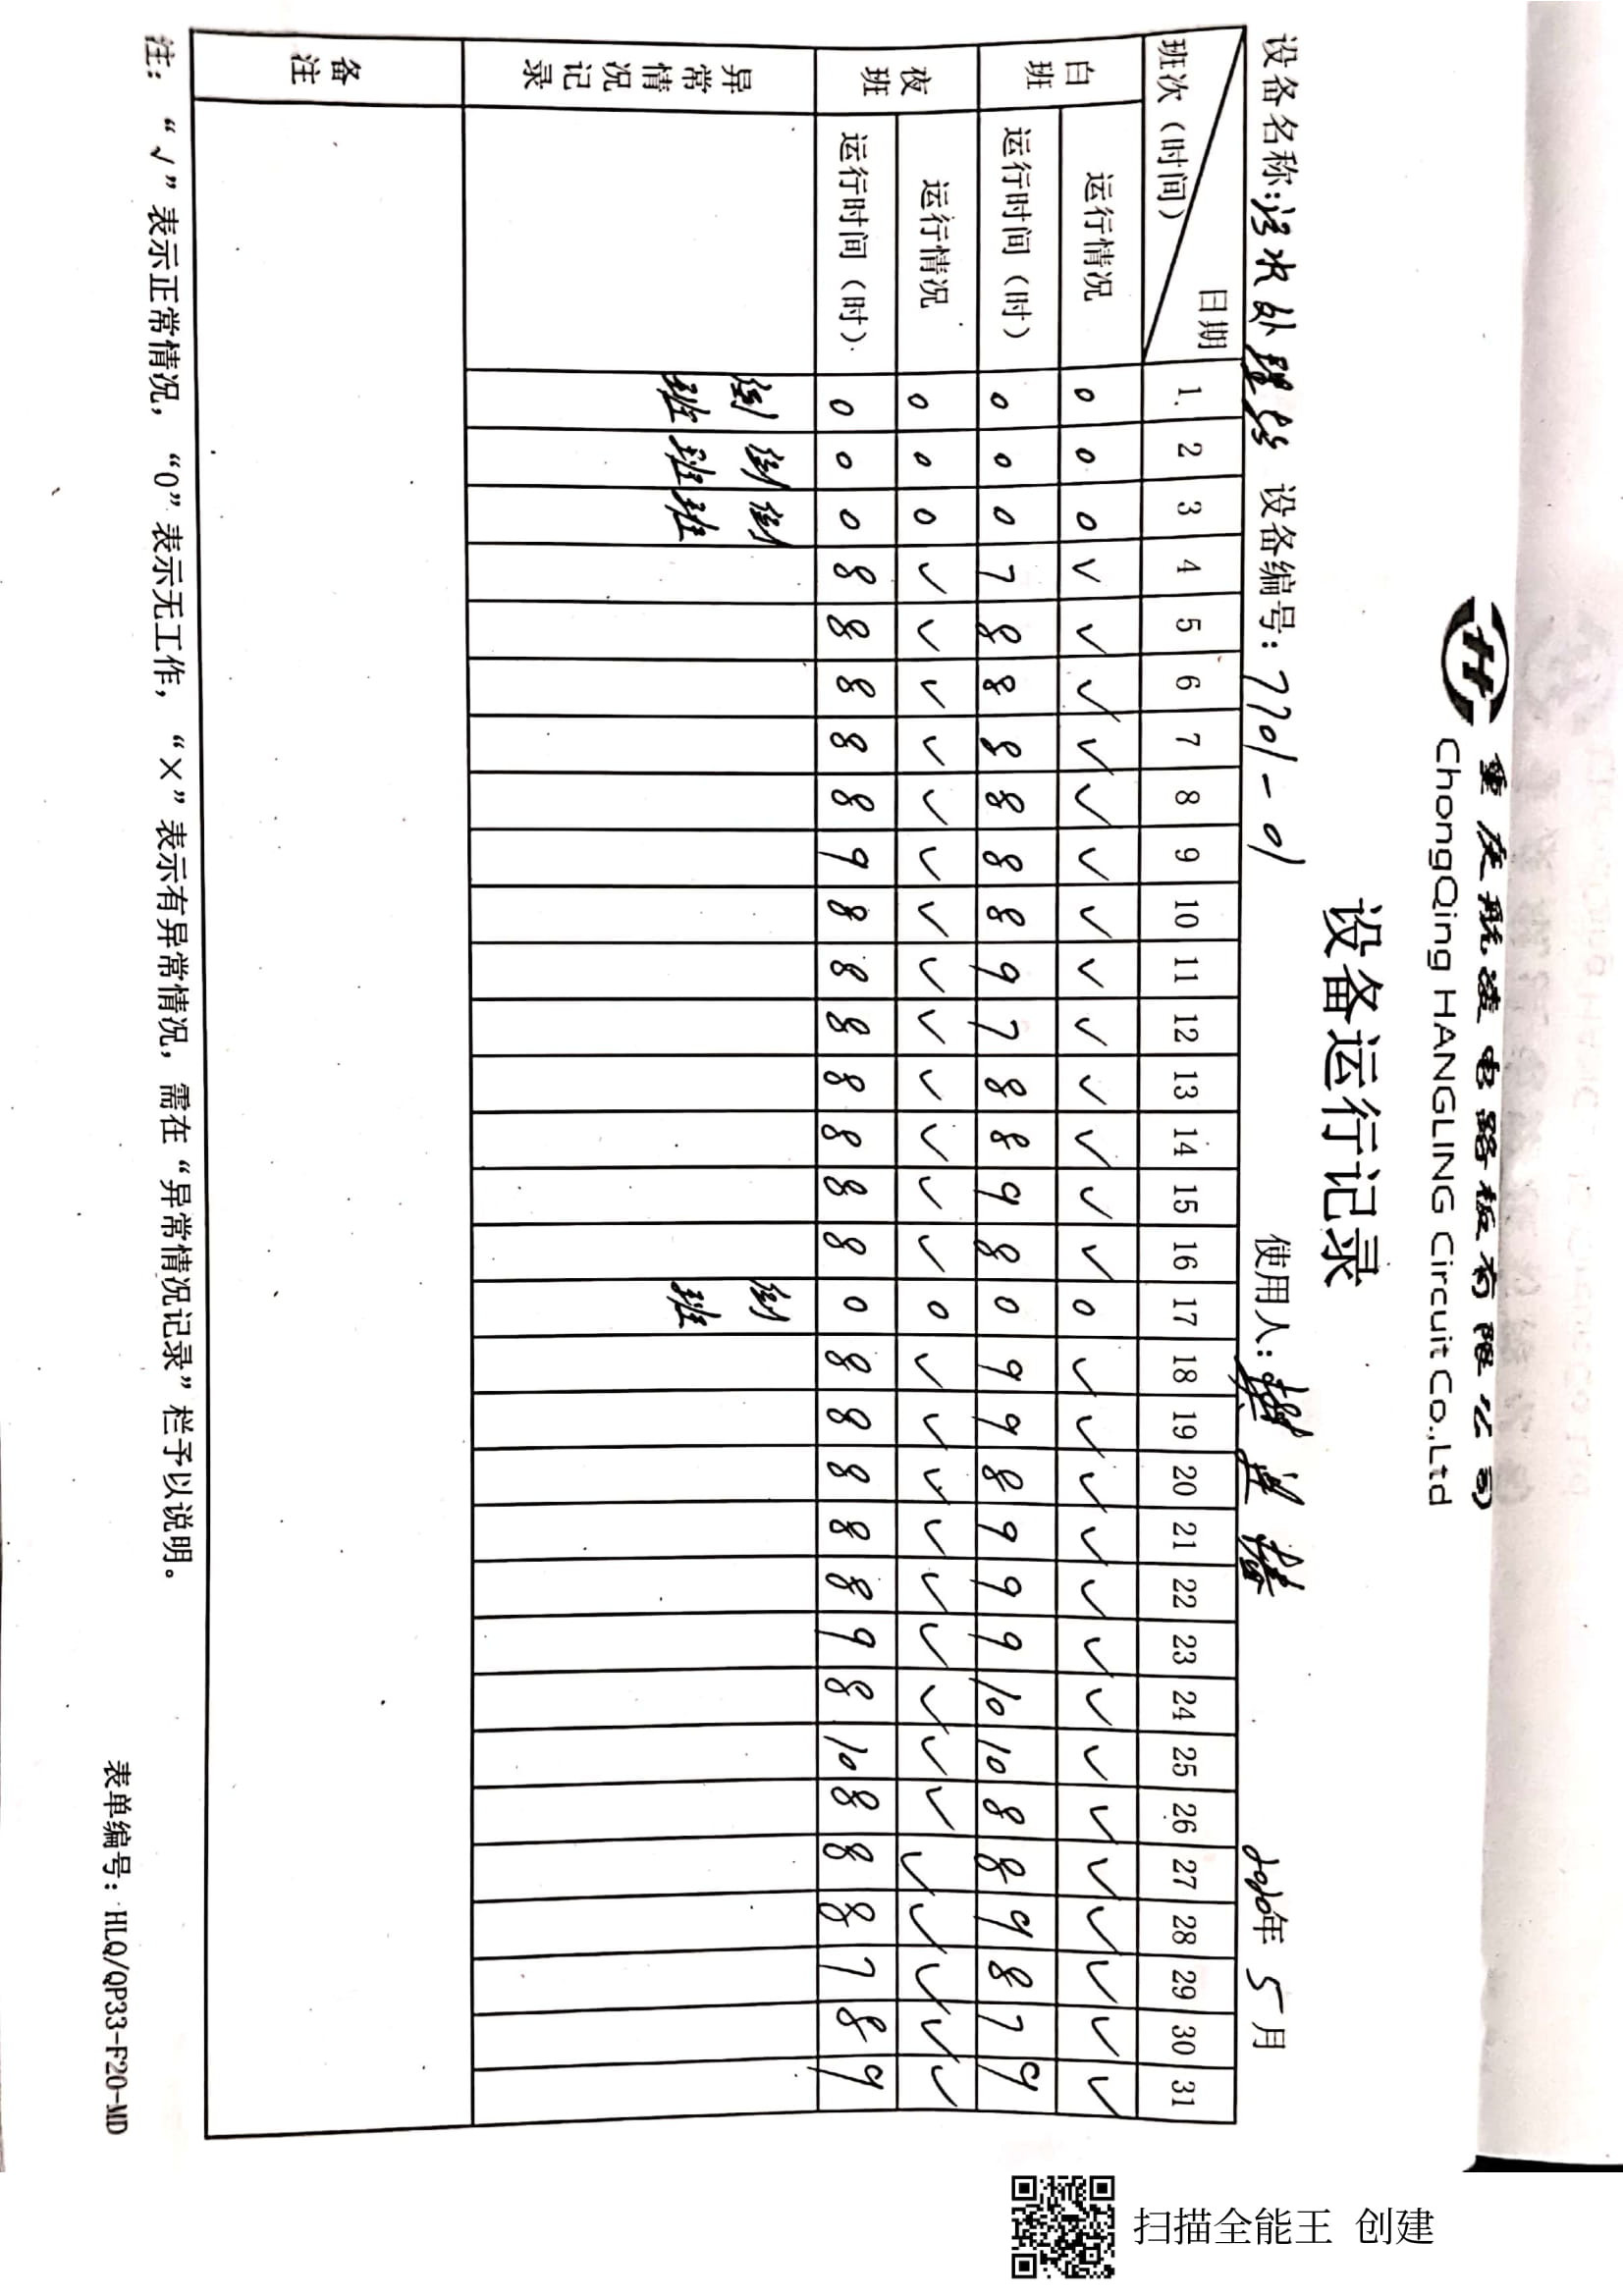 重庆航凌电路板有限公司
ChongQing HANGLING Circuit Co.,Ltd
设备运行记录
设备名称:污水处理站 设备编号: 7701-01 使用人: 2020年 5月
班次(时间) 日期 1. 2 3 4 5 6 7 8 9 10 11 12 13 14 15 16 17 18 19 20 21 22 23 24 25 26 27 28 29 30 31
白班 运行情况 0 0 0 ✓ ✓ ✓ ✓ ✓ ✓ ✓ ✓ ✓ ✓ ✓ ✓ ✓ 0 ✓ ✓ ✓ ✓ ✓ ✓ ✓ ✓ ✓ ✓ ✓ ✓ ✓ ✓
运行时间(时) 0 0 0 7 8 8 8 8 8 8 9 7 8 8 9 8 0 9 9 8 9 9 9 10 10 8 8 9 8 7 9
夜班 运行情况 0 0 0 ✓ ✓ ✓ ✓ ✓ ✓ ✓ ✓ ✓ ✓ ✓ ✓ ✓ 0 ✓ ✓ ✓ ✓ ✓ ✓ ✓ ✓ ✓ ✓ ✓ ✓ ✓ ✓
运行时间(时) 0 0 0 8 8 8 8 8 9 8 8 8 8 8 8 8 0 8 8 8 8 8 9 8 10 8 8 8 7 8 9
异常情况记录 班 班 班 班
备注
注: “√”表示正常情况, “0”表示无工作, “×”表示有异常情况, 需在“异常情况记录”栏予以说明。
表单编号: HLQ/QP33-F20-MD
扫描全能王 创建